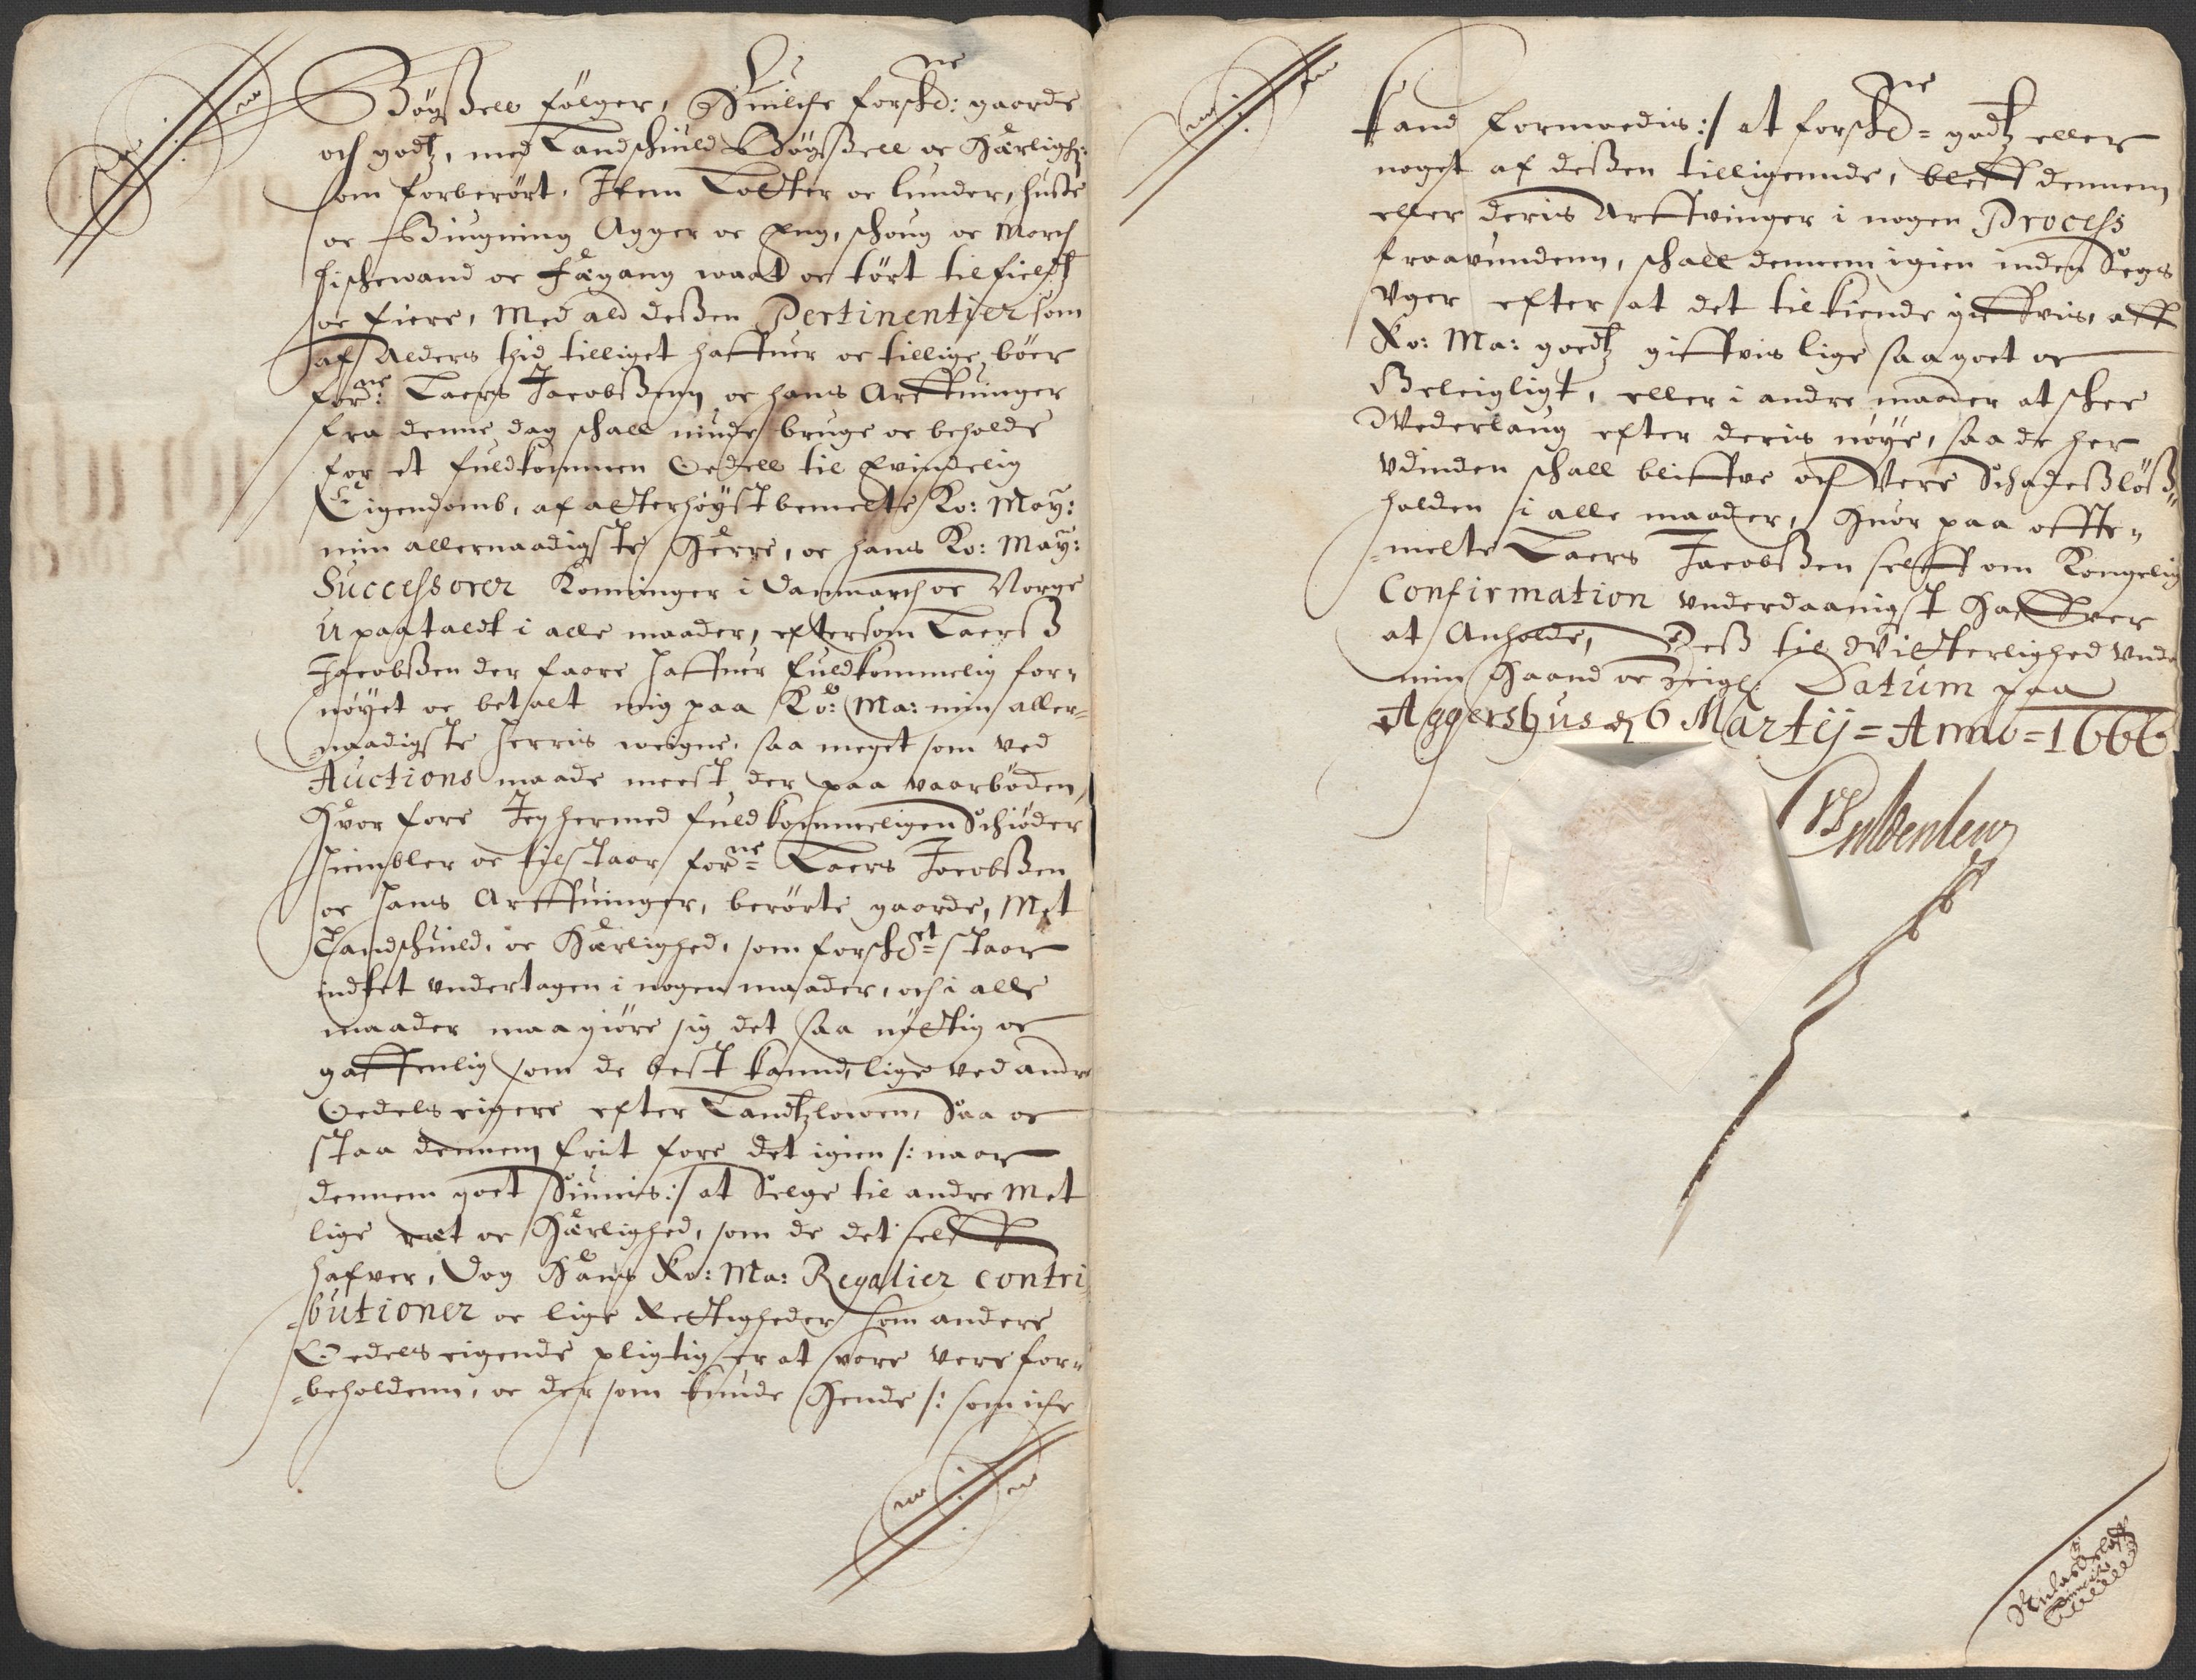 Böÿßell följger, Huilche forskne: gaarde
och godtz, med Landschuld Böÿgßell oc Härligh:
som forberört, Item Lotter oc lunder, huße
oc Biugning Agger oc Eng, schoug oc March
fischewand oc Fægang waat oc tört til fieldtz
oc fiere, Med ald deßen Pertinentier som
af Alders thid tilliget haffuer oc tillige böer
forne: Laers Jacobßenn oc hans Arffuinger
fra denne dag schall niude bruge oc beholde
for et fuldkommen Oedell til Evindelig
Eigendomb, af alterhöÿstbemelte Ko: Maÿ:
min allernaadigste Herre, oc hans Ko: Maÿ:
Successorer Konninger i Danmarch oc Norge
Upaataldt i alle maader, eftersom Laerß
Jacobßen der faare haffuer fuldkommelig for=
nöÿet oc betalt mig paa Ko: Ma: min aller=
naadigste Herris weigne, saa meget som ved
Auctions maade meest der paa vaarböden,
Hvor fore Jeg hermed fuldkommeligen Schiöder
hiembler oc tilstaar forne= Laers Jacobßen
oc hans Arffuinger, berörte gaarde, Met
Landschuld, oc Härlighed, som forschrt= staar
indtet undertagen i nogen maader, och i alle
maader maa giöre sig det saa nÿttig oc
gaffenlig som de best kannd, lige ved andre
Oedels eigere efter Landtzlowen, Saa oc
staa dennem frit fore det igien /: naar
dennem goet Siunis :/ at Selge til andre Met
lige ræt oc Härlighed, som de det selff
hafver, Dog Hans Ko: Ma: Regalier contri
=butioner oc lige Rettigheder som andere
Oedels eigende pligtig er at svare vere for=
=beholdenn, oc der som kunde Hende /: som iche
kand formoedis :/ at forskne= godtz eller
noget af deßen tilligennde, bleff dennem
eller deris Arffvinger i nogen Process
fraavundenn, schall dennem igien inden Segs
Uger efter at det tilkiende gieffvis, aff
Ko: Ma: goedtz gieffvis lige saa goet oc
Beleigligt, eller i andre maader at schee
Wederlaug efter deris nöÿe, saa de her
udinden schall bliffve och Vere Schadeßlöß
holden i alle maader, Huor paa offte=
=melte Laers Jacobßen selff om Kongelig
Confirmation underdaanigst Haffver
at Anholde, Deß til Vitterlighed Unde
min Haand oc Zeigl. Datum paa
Aggershus d 6 Martij = Anno = 1666